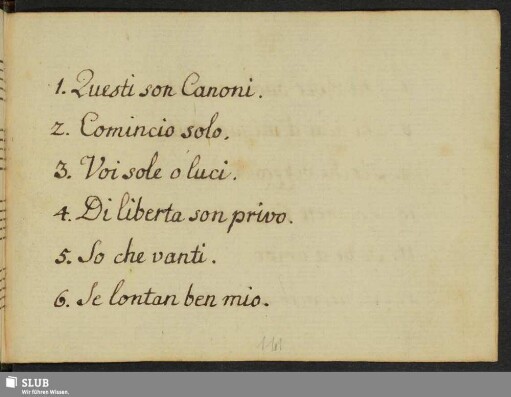 1. Questi son Canoni.
2. Comincio solo.
3. Voi sole o luci.
4. Di liberta son privo.
5. So che vanti.
6. Se lontan ben mio.
SLUB
Wir führen Wissen.